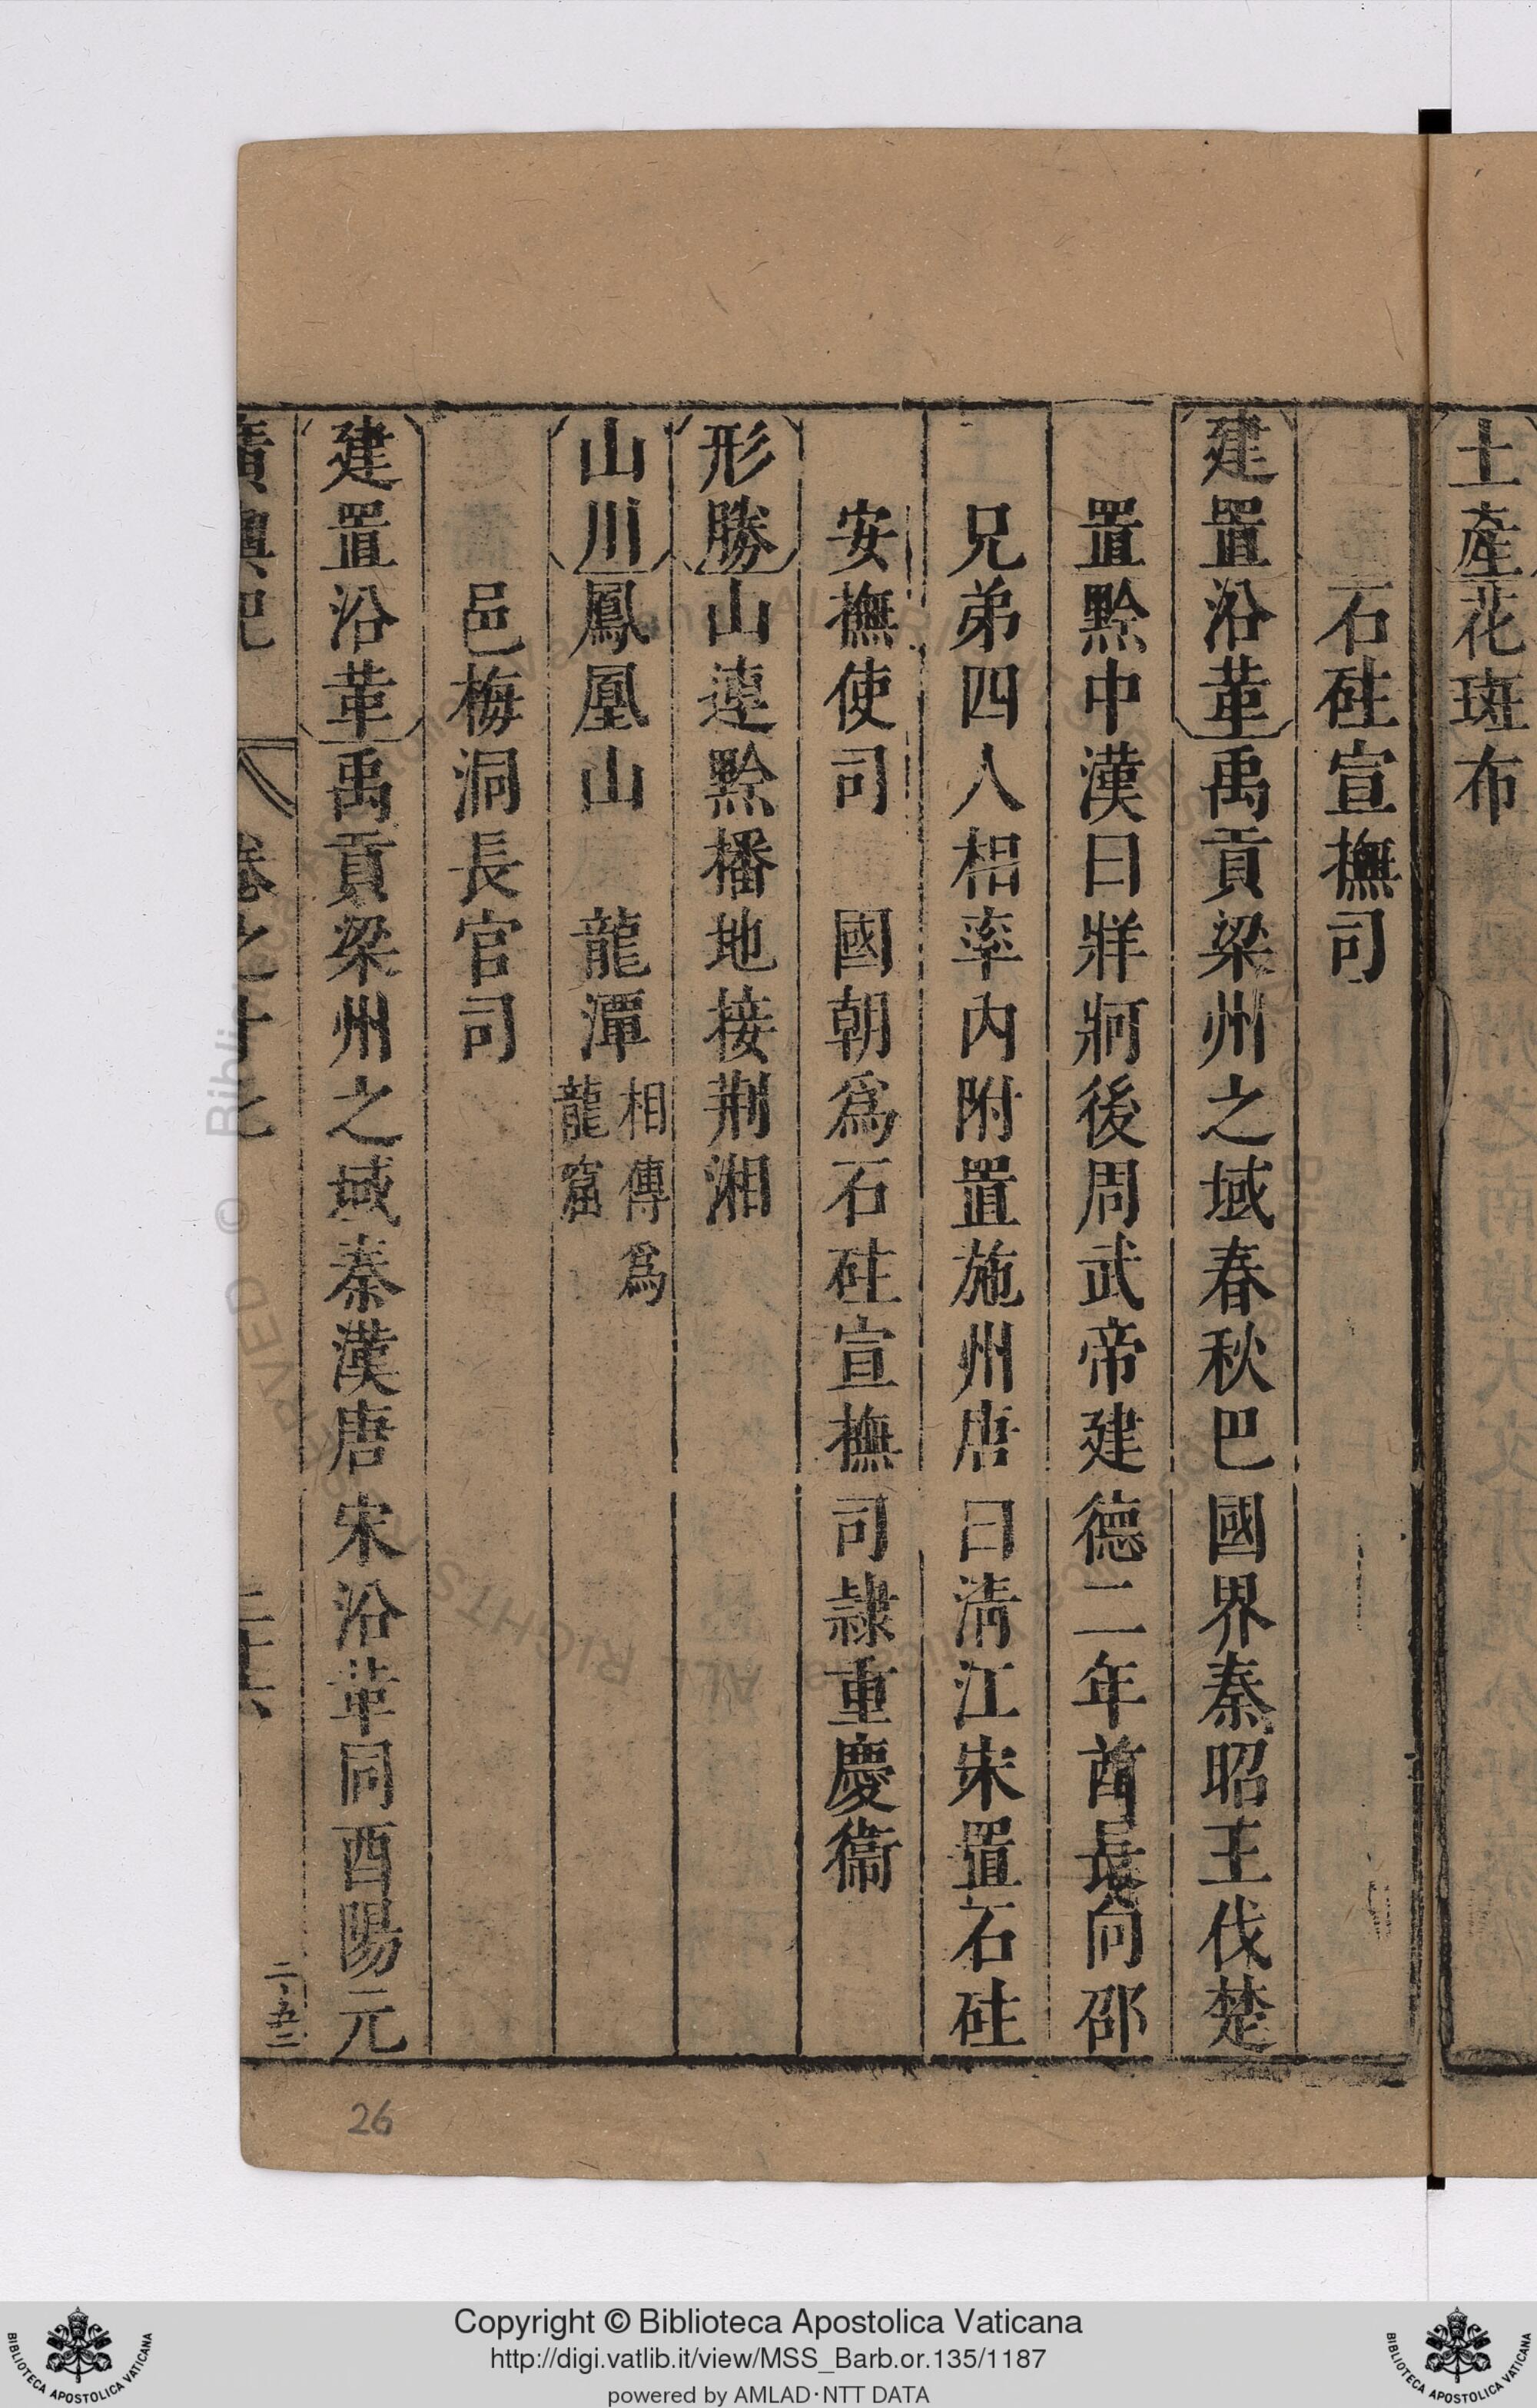 土產花斑布
石砫宣撫司
建置沿革禹貢梁州之域春秋巴國界秦昭王伐楚
置黔中漢曰牂牁後周武帝建德二年酋長向邵
兄弟四人相率內附置施州唐曰淸江宋置石砫
安撫使司 國朝爲石砫宣撫司隷重慶衞
形勝山連黔播地接荆湘
山川鳳凰山 龍潭相傳爲龍窟
邑梅洞長官司
建置沿革禹貢梁州之域秦漢唐宋沿革同酉陽元
廣輿記 卷之十七 二十六
二千五二
26
Copyright © Biblioteca Apostolica Vaticana
http://digi.vatlib.it/view/MSS_Barb.or.135/1187
powered by AMLAD·NTT DATA
BIBLIOTECA APOSTOLICA VATICANA
BIBLIOTECA APOSTOLICA VATICANA